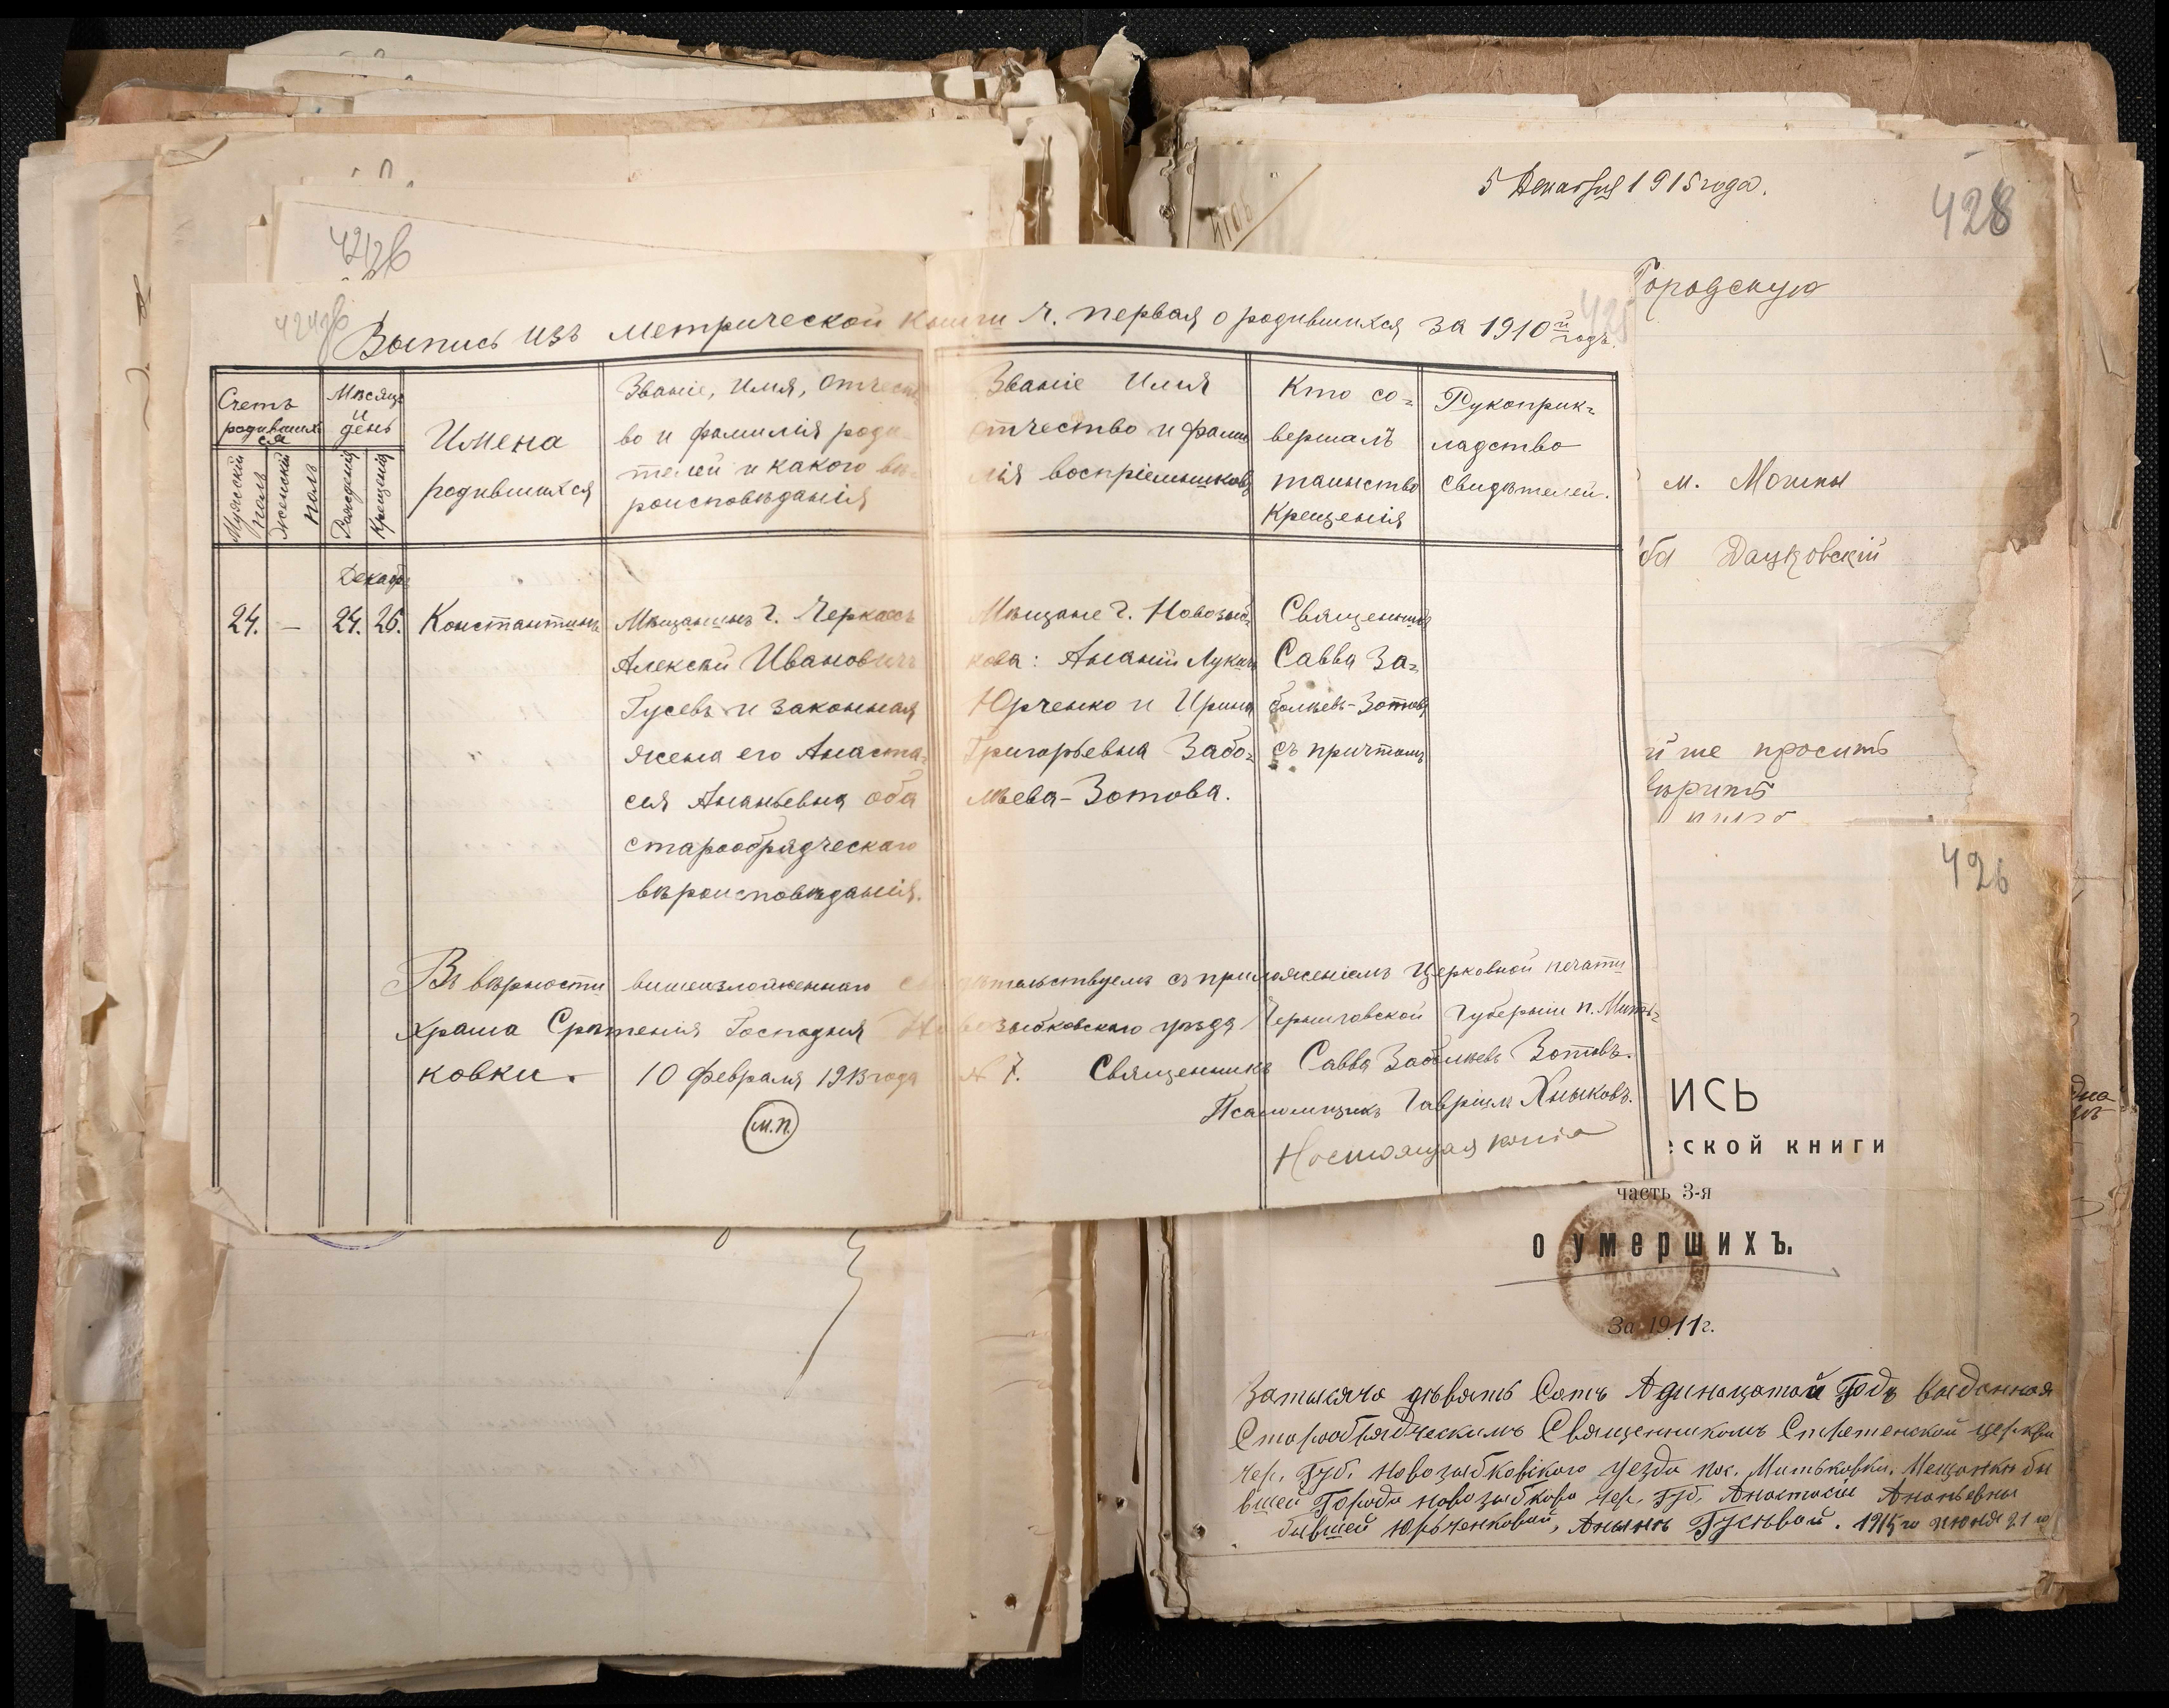 5 Декабря 1915 года.
428
Городскую
м. Мошны
Дацковскій
просить
426
Выпись изъ метрической книги ч. первая о родившихся за 1910й годъ.
Счетъ родившихся
Мужскій полъ
Женскій полъ
Мѣсяцъ и день
Рожденія
Крещенія
Имена
родившихся
Званіе, имя, отчест
во и фамилія роди
телей и какого вѣ
роисповѣданія
Званіе Имя
отчество и фами
лія воспріемниковъ
Кто со=
вершалъ
таинство
крещенія
Рукоприк=
ладство
свидѣтелей.
Декабр
24. — 24. 26.
Константинъ
Мѣщанинъ г. Черкассъ
Алексѣй Ивановичъ
Гусевъ и законная
жена его Анаста=
сія Ананьевна оба
старообрядческаго
вѣроисповѣданія.
Мѣщане г. Новозыб=
кова: Ананій Лукичъ
Юрченко и Ирина
Григорьевна Забо=
лѣева-Зотова.
Священникъ
Савва За=
болѣевъ-Зотовъ
съ причтомъ
Въ вѣрности вишеизложеннаго свидѣтельствуемъ съ приложеніемъ Церковной печати
храма Срѣтенія Господня Новозыбковскаго уѣзда Черниговской Губерніи п. Мить=
ковки. 10 Февраля 1913 года № 7. Священникъ Савва Заболѣевъ Зотовъ.
Псаломщикъ Гавріилъ Хныковъ.
М.П.
Настоящая копія
ИСЬ
ской книги
часть 3-я
о умершихъ.
За 1911г.
За тысяча дѣвять Сотъ Адинацатой Годъ выданная
Старообрядческимъ Священникомъ Стретенской церкви
Чер. Губ. Новозыбковского уезда пос. Митьковки. Мещанки бы
вшей Города Новозыбкова Чер. Губ. Анастасіи Ананьевны
бывшей Юрьченковой, Анынѣ Гусѣвой. 1915 го июня 21 го